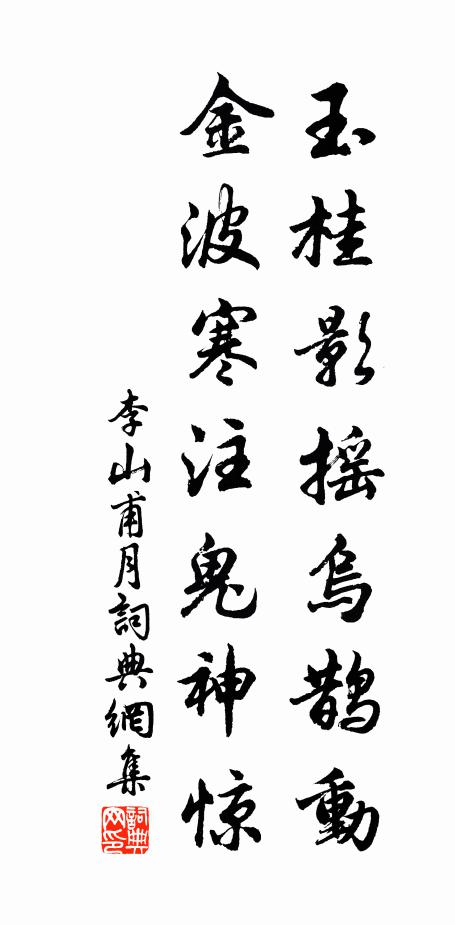 玉桂影摇烏鹊動
金波寒注鬼神惊
李山甫月詞典網集
詞典网印